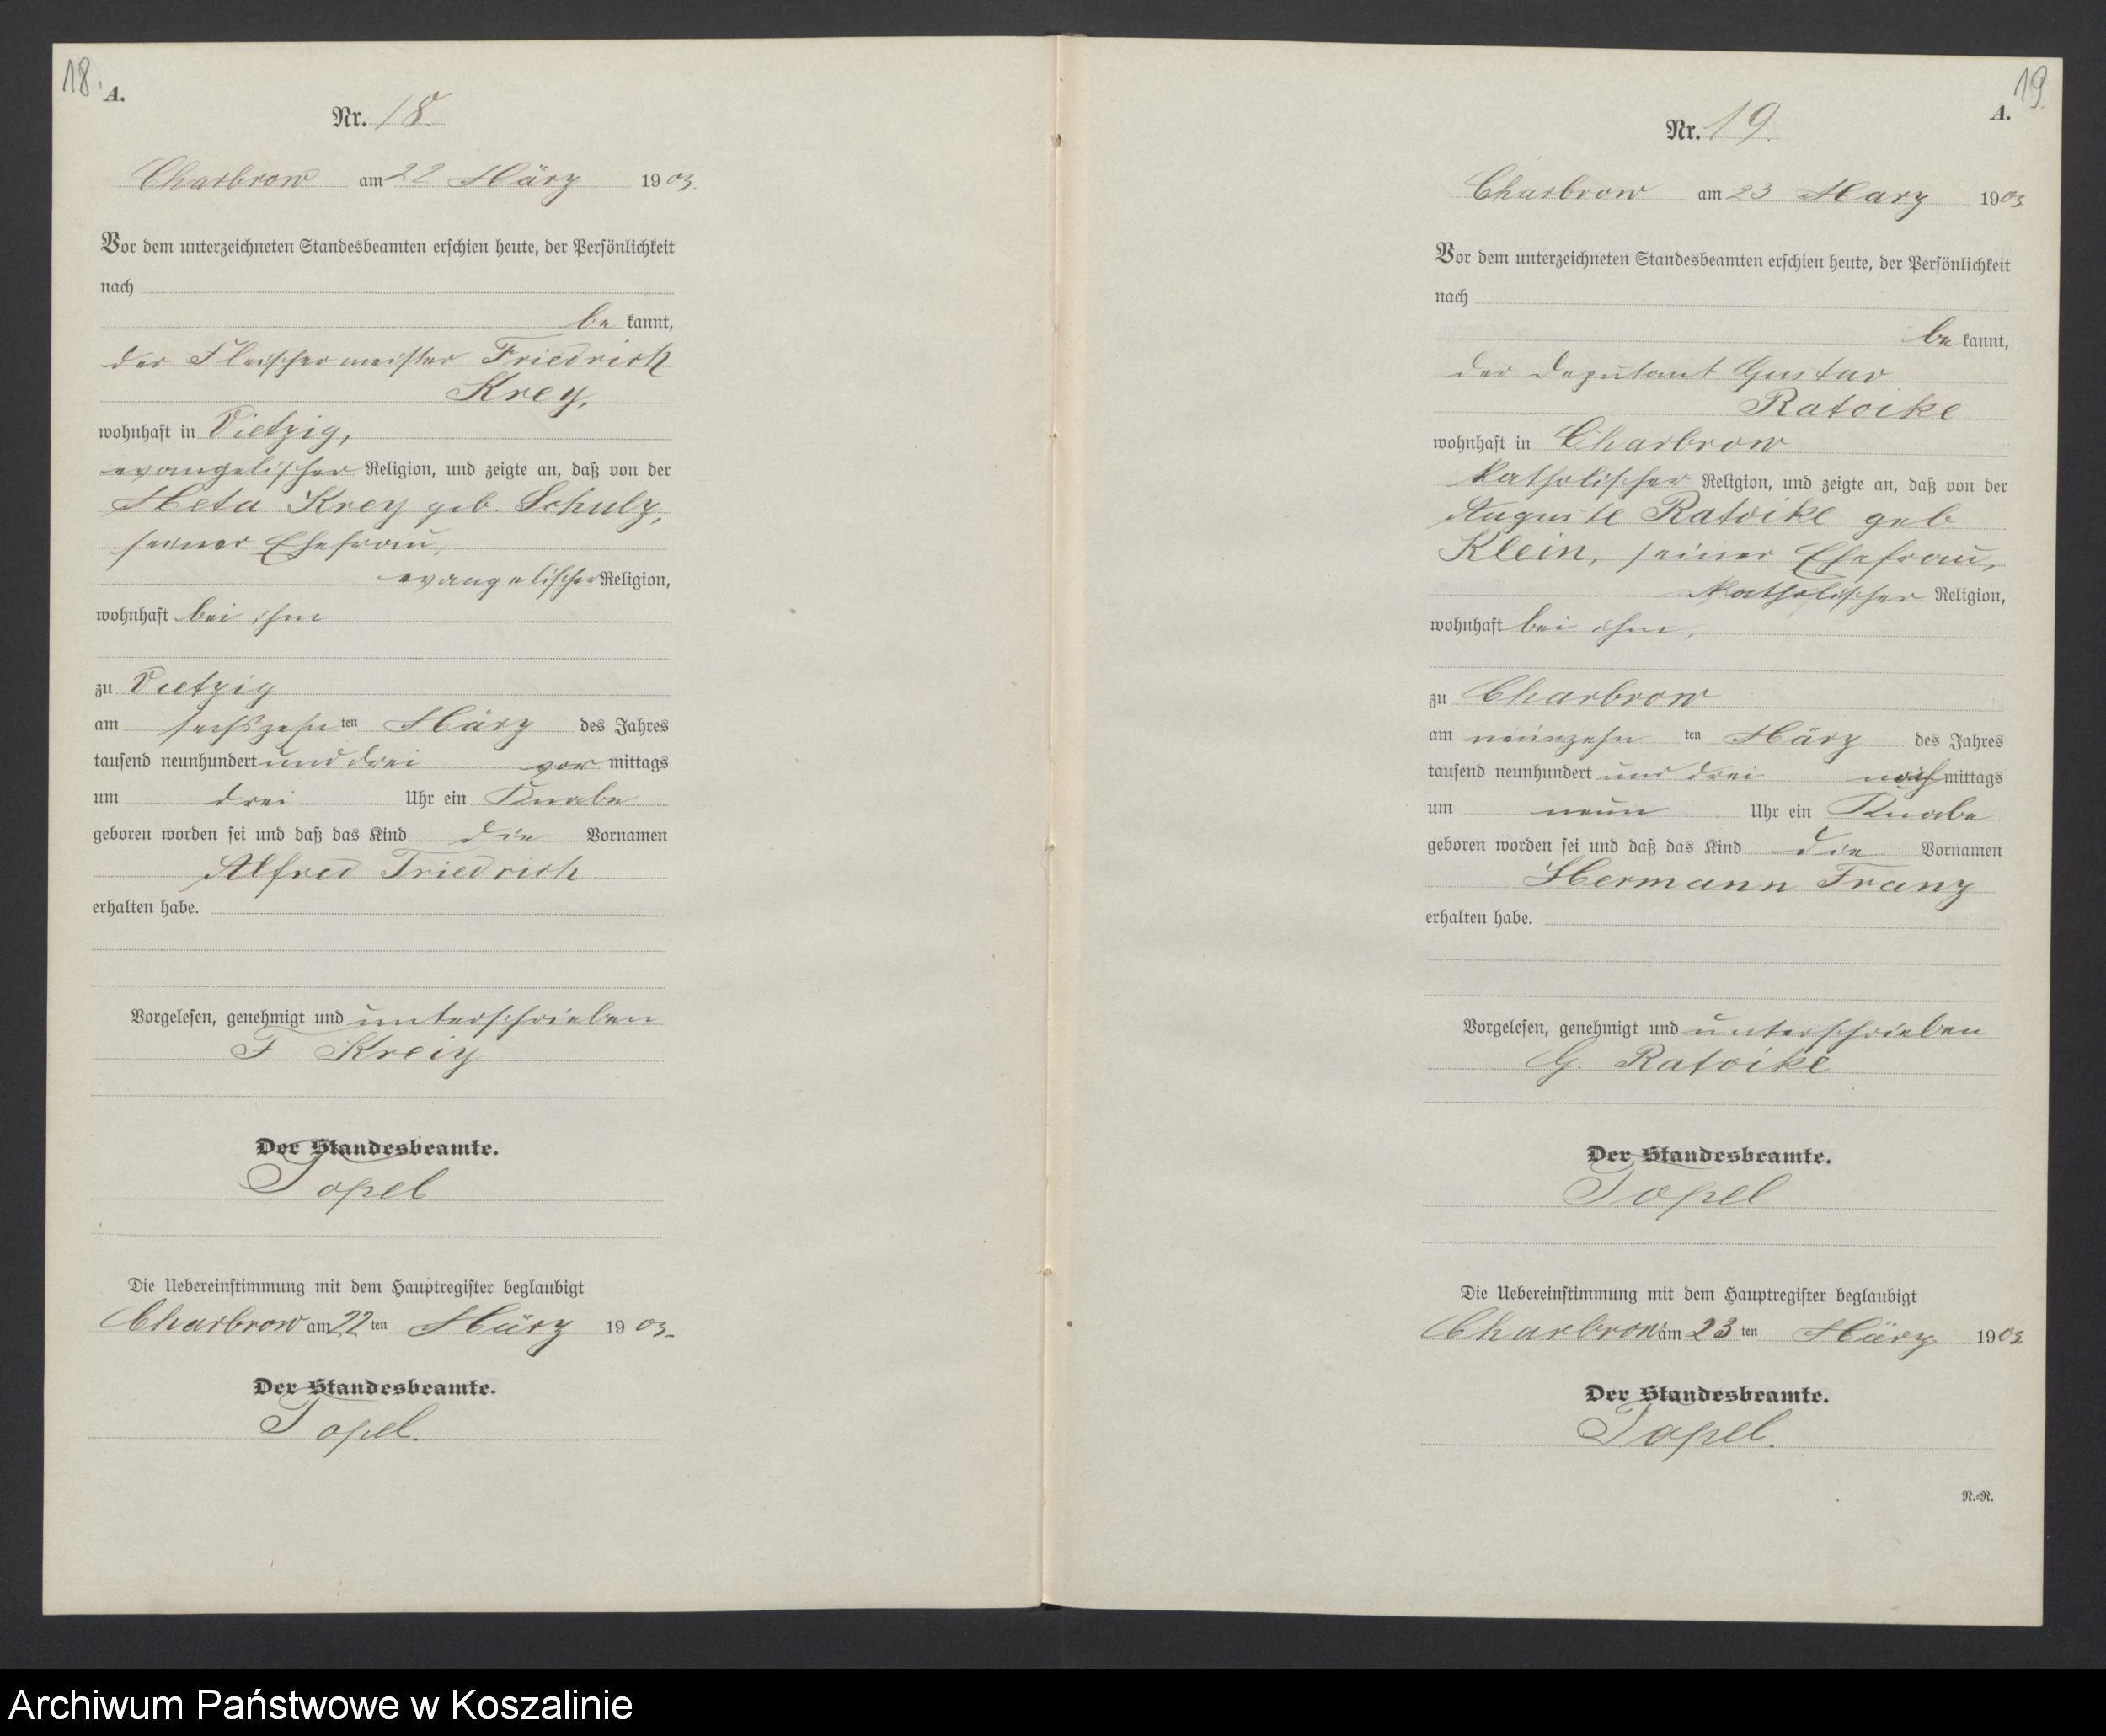 18.
A.
Nr. 18.
Charbrow am 22 März 1903.
Vor dem unterzeichneten Standesbeamten erschien heute, der Persönlichkeit
nach
be kannt,
der Fleischermeister Friedrich
Krey,
wohnhaft in Vietzig,
evangelischer Religion, und zeigte an, daß von der
Meta Krey geb. Schulz,
seiner Ehefrau,
evangelischer Religion,
wohnhaft bei ihm
zu Vietzig
am sechszehn ten März des Jahres
tausend neunhundert und drei vor mittags
um drei Uhr ein Knabe
geboren worden sei und daß das Kind die Vornamen
Alfred Friedrich
erhalten habe.
Vorgelesen, genehmigt und unterschrieben
F Kreiy
Der Standesbeamte.
Topel
Die Uebereinstimmung mit dem Hauptregister beglaubigt
Charbrow am 22 ten März 1903.
Der Standesbeamte.
Topel.
19.
A.
Nr. 19.
Charbrow am 23 Marz 1903
Vor dem unterzeichneten Standesbeamten erschien heute, der Persönlichkeit
nach
be kannt,
der Deputant Gustav
Ratoike
wohnhaft in Charbrow
katholischer Religion, und zeigte an, daß von der
Auguste Ratoike geb
Klein, seiner Ehefrau,
katholischer Religion,
wohnhaft bei ihm,
zu Charbrow
am neunzehn ten März des Jahres
tausend neunhundert und drei nach mittags
um neun Uhr ein Knabe
geboren worden sei und daß das Kind die Vornamen
Hermann Franz
erhalten habe.
Vorgelesen, genehmigt und unterschrieben
G. Ratoike
Der Standesbeamte.
Topel
Die Uebereinstimmung mit dem Hauptregister beglaubigt
Charbrow am 23 ten März 1903.
Der Standesbeamte.
Topel.
N.=R.
Archiwum Państwowe w Koszalinie